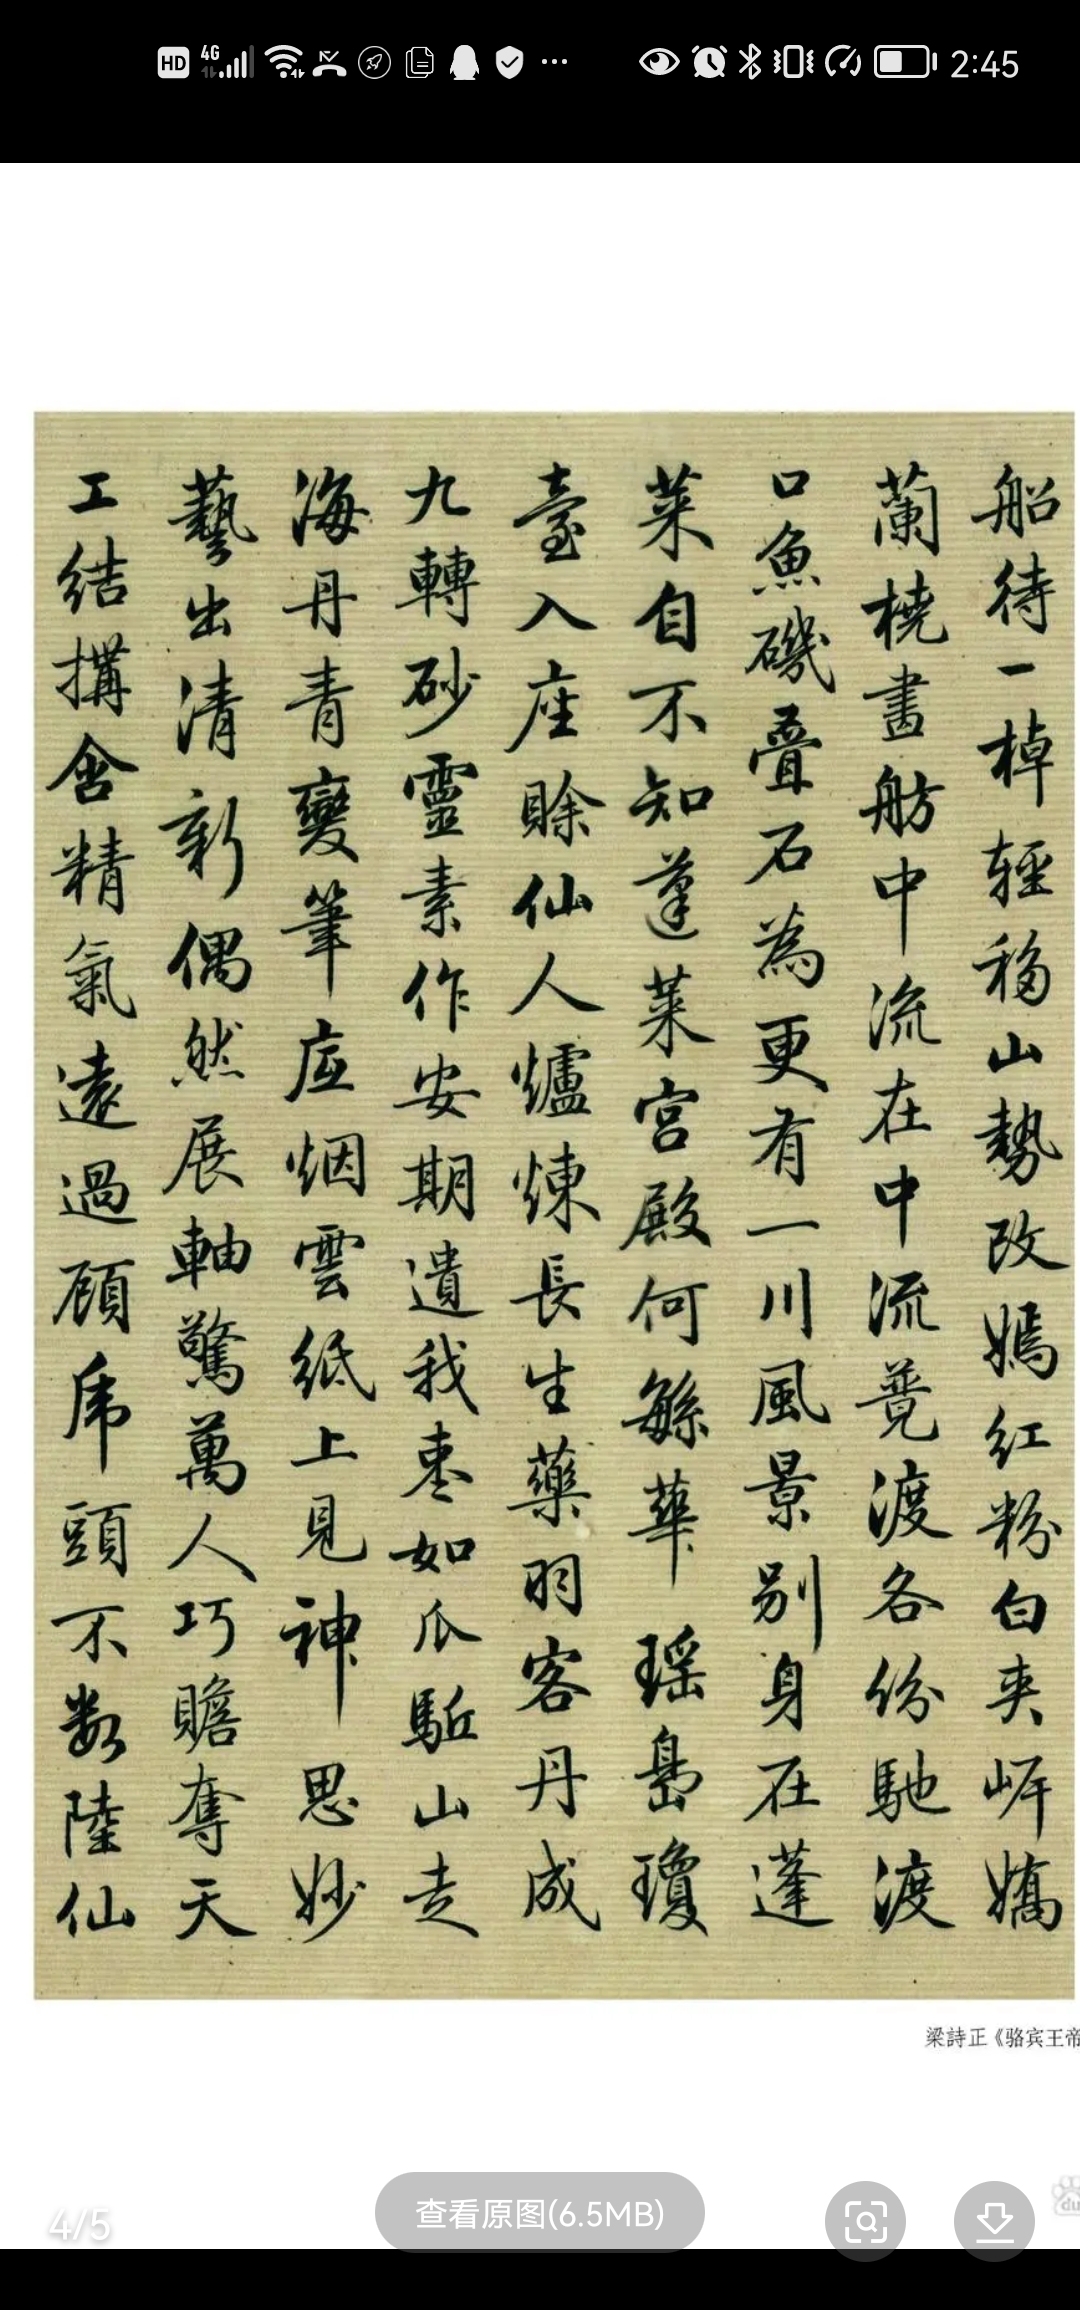 HD 4G 2:45
船待一棹輕移山勢改嫣紅粉白夾岍嬌
蘭橈畫舫中流在中流競渡各份馳渡
口魚磯疊石為更有一川風景别身在蓬
萊自不知蓬萊宮殿何繇華瑶島瓊
臺入座賖仙人爐煉長生藥羽客丹成
九轉砂靈素作安期遺我枣如瓜駈山走
海丹青變筆底烟雲紙上見神思妙
藝出清新偶然展軸驚萬人巧贍奪天
工結搆含精氣遠過顾虎頭不数陸仙
梁詩正《骆宾王帝
4/5
查看原图(6.5MB)
du